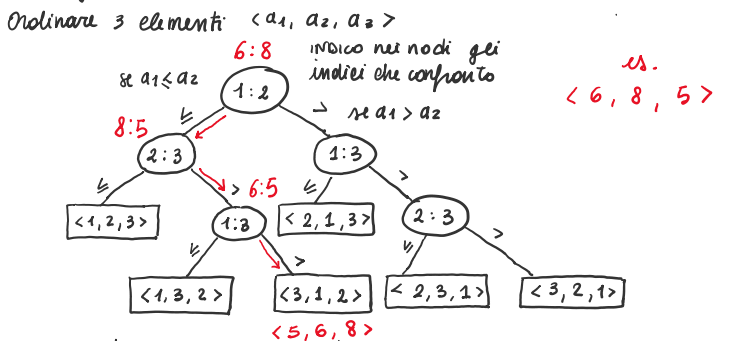 Ordinare 3 elementi <a1, a2, a3>
6:8
INDICO nei nodi gli
indici che confronto
es.
<6, 8, 5>
se a1≤a2
1:2
≤
>
se a1>a2
8:5
2:3
1:3
≤
>
6:5
≤
>
<1,2,3>
1:3
<2,1,3>
2:3
≤
>
≤
>
<1,3,2>
<3,1,2>
<2,3,1>
<3,2,1>
<5,6,8>